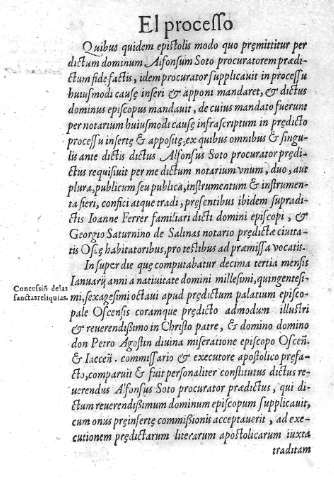 El processo
Quibus quidem epistolis modo quo pręmittitur per
dictum dominum Alfonsum Soto procuratorem prædi-
ctum fide factis, idem procurator supplicauit in processu
huiusmodi causę inseri & apponi mandaret, & dictus
dominus episcopus mandauit, de cuius mandato fuerunt
per notarium huiusmodi causę infrascriptum in prędicto
processu insertę & appositę, ex quibus omnibus & singu-
lis ante dictis dictus Alfonsus Soto procurator prędi-
ctus requisiuit per me dictum notarium vnum, duo, aut
plura, publicum seu publica, instrumentum & instrumen-
ta fieri, confici atque tradi, pręsentibus ibidem supradi-
ctis Ioanne Ferrer familiari dicti domini episcopi, &
Georgio Saturnino de Salinas notario prędictæ ciuita-
tis Oscę habitatoribus, pro testibus ad pramissa vocatis.
Insuper die quę computabatur decima tertia mensis
Ianuarij anni a natiuitate domini millesimi, quingentesi-
Concession de las
sanctas reliquias.
mi, sexagesimi octaui apud prędictum palatium episco-
pale Oscensis coramque prędicto admodum illustri
& reuerendissimo in Christo patre, & domino domino
don Petro Agostin diuina miseratione episcopo Osceñ.
& Iacceñ. commissario & executore apostolico prefa-
cto, comparuit & fuit personaliter constitutus dictus re-
uerendus Alfonsus Soto procurator prædictus, qui di-
ctum reuerendissimum dominum episcopum supplicauit,
cum onus preinsertę commissionis acceptauerit, ad exe-
cutionem prędictarum literarum apostolicarum iuxta
traditam